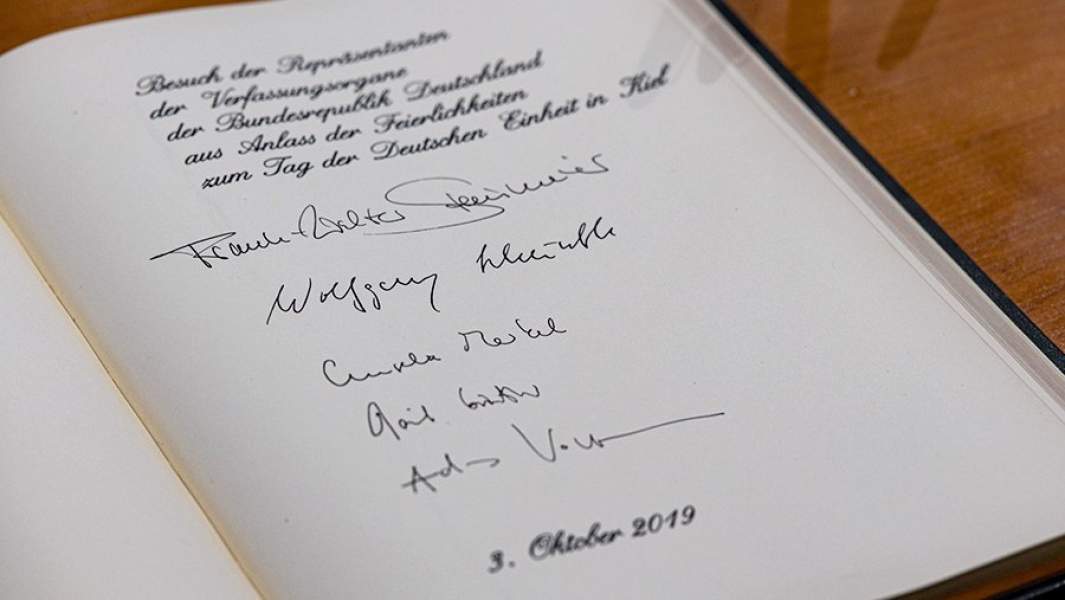 Besuch der Repräsentanten
der Verfassungsorgane
der Bundesrepublik Deutschland
aus Anlass der Feierlichkeiten
zum Tag der Deutschen Einheit in Kiel
Frank-Walter Steinmeier
Wolfgang Schäuble
Angela Merkel
3. Oktober 2019